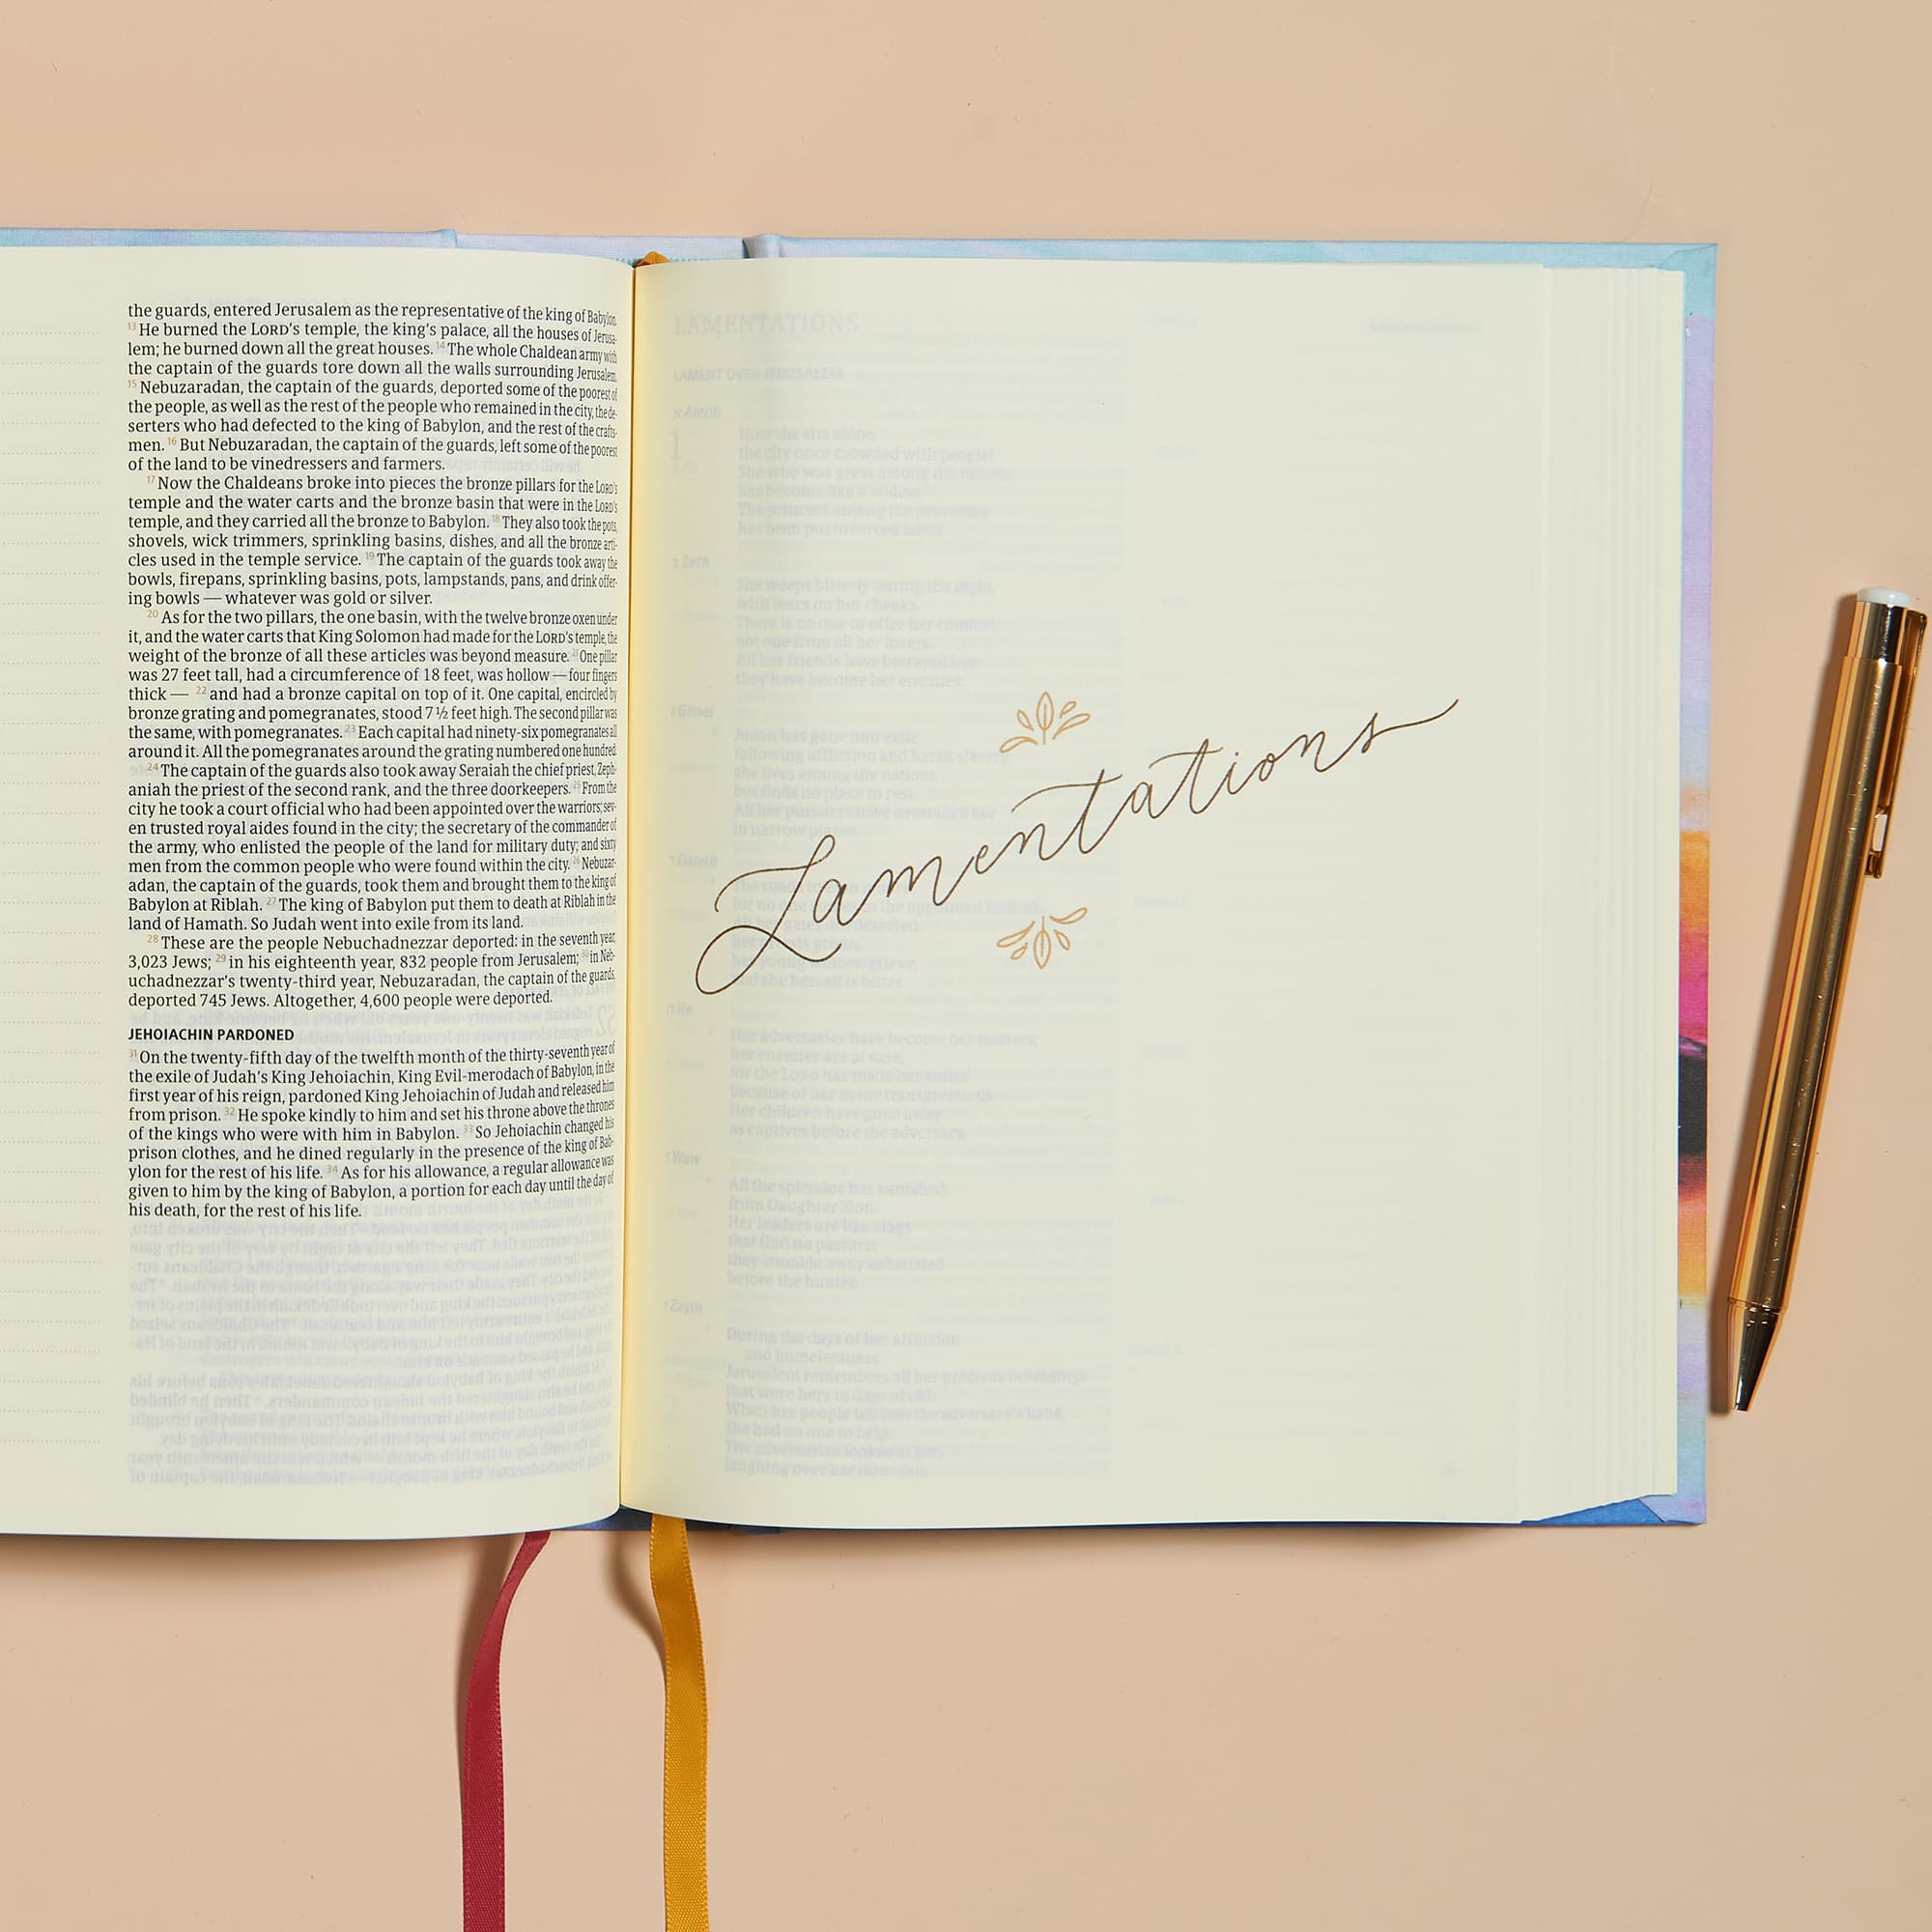 the guards, entered Jerusalem as the representative of the king of Babylon.
13 He burned the LORD's temple, the king's palace, all the houses of Jerusa-
lem; he burned down all the great houses. 14 The whole Chaldean army with
the captain of the guards tore down all the walls surrounding Jerusalem.
15 Nebuzaradan, the captain of the guards, deported some of the poorest of
the people, as well as the rest of the people who remained in the city, the de-
serters who had defected to the king of Babylon, and the rest of the crafts-
men. 16 But Nebuzaradan, the captain of the guards, left some of the poorest
of the land to be vinedressers and farmers.
17 Now the Chaldeans broke into pieces the bronze pillars for the LORD's
temple and the water carts and the bronze basin that were in the LORD's
temple, and they carried all the bronze to Babylon. 18 They also took the pots,
shovels, wick trimmers, sprinkling basins, dishes, and all the bronze arti-
cles used in the temple service. 19 The captain of the guards took away the
bowls, firepans, sprinkling basins, pots, lampstands, pans, and drink offer-
ing bowls — whatever was gold or silver.
20 As for the two pillars, the one basin, with the twelve bronze oxen under
it, and the water carts that King Solomon had made for the LORD's temple, the
weight of the bronze of all these articles was beyond measure. 21 One pillar
was 27 feet tall, had a circumference of 18 feet, was hollow — four fingers
thick — 22 and had a bronze capital on top of it. One capital, encircled by
bronze grating and pomegranates, stood 7 ½ feet high. The second pillar was
the same, with pomegranates. 23 Each capital had ninety-six pomegranates all
around it. All the pomegranates around the grating numbered one hundred.
24 The captain of the guards also took away Seraiah the chief priest, Zeph-
aniah the priest of the second rank, and the three doorkeepers. 25 From the
city he took a court official who had been appointed over the warriors; sev-
en trusted royal aides found in the city; the secretary of the commander of
the army, who enlisted the people of the land for military duty; and sixty
men from the common people who were found within the city. 26 Nebuzar-
adan, the captain of the guards, took them and brought them to the king of
Babylon at Riblah. 27 The king of Babylon put them to death at Riblah in the
land of Hamath. So Judah went into exile from its land.
28 These are the people Nebuchadnezzar deported: in the seventh year,
3,023 Jews; 29 in his eighteenth year, 832 people from Jerusalem; 30 in Neb-
uchadnezzar's twenty-third year, Nebuzaradan, the captain of the guards,
deported 745 Jews. Altogether, 4,600 people were deported.
JEHOIACHIN PARDONED
31 On the twenty-fifth day of the twelfth month of the thirty-seventh year of
the exile of Judah's King Jehoiachin, King Evil-merodach of Babylon, in the
first year of his reign, pardoned King Jehoiachin of Judah and released him
from prison. 32 He spoke kindly to him and set his throne above the thrones
of the kings who were with him in Babylon. 33 So Jehoiachin changed his
prison clothes, and he dined regularly in the presence of the king of Bab-
ylon for the rest of his life. 34 As for his allowance, a regular allowance was
given to him by the king of Babylon, a portion for each day until the day of
his death, for the rest of his life.
Lamentations